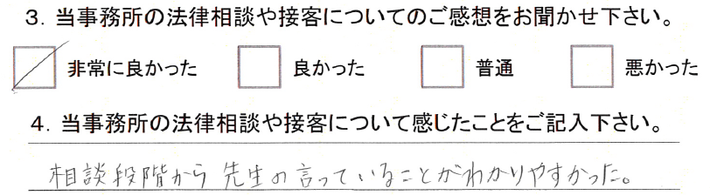 3. 当事務所の法律相談や接客についてのご感想をお聞かせ下さい。
非常に良かった 良かった 普通 悪かった
4. 当事務所の法律相談や接客について感じたことをご記入下さい。
相談段階から先生の言っていることがわかりやすかった。